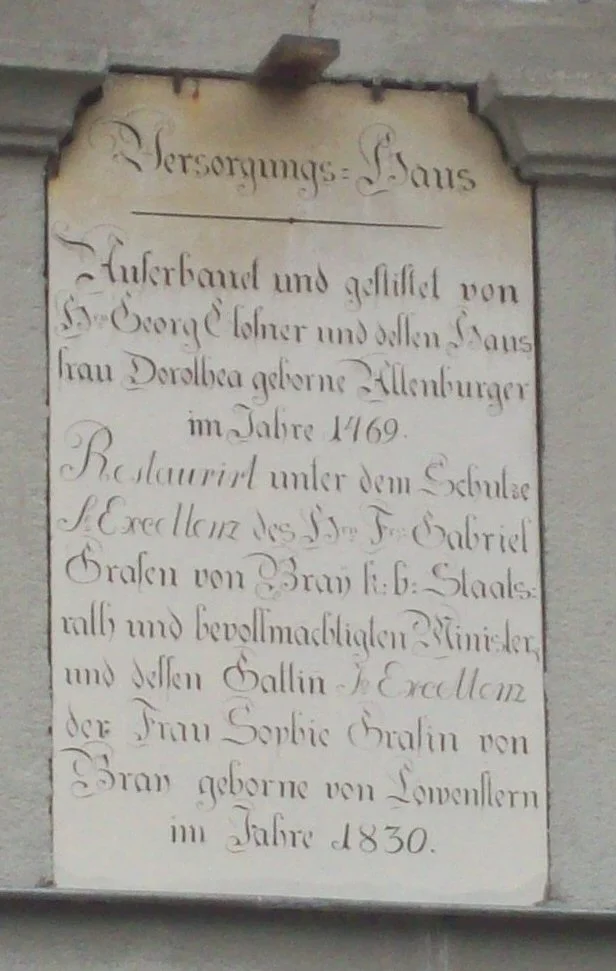 Versorgungs=Haus
Auferbauet und gestiftet von
Hrn Georg Closner und dessen Haus
frau Dorothea geborne Altenburger
im Jahre 1469.
Restaurirt unter dem Schutze
Sr Excellenz des Hrn Frz Gabriel
Grafen von Bray k: b: Staats=
rath und bevollmachtigten Minister,
und dessen Gattin Ir Excellenz
der Frau Sophie Grafin von
Bray geborne von Lowenstern
im Jahre 1830.